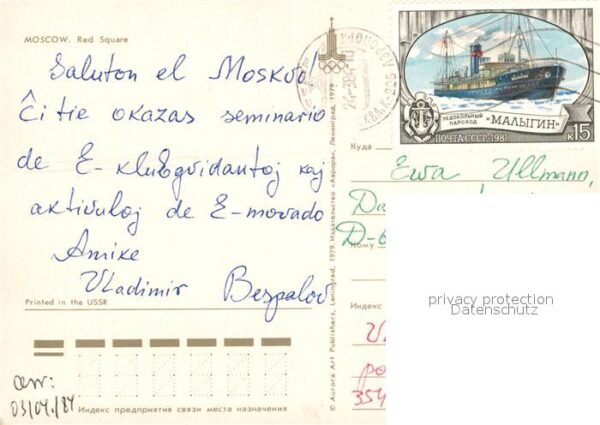 MOSCOW. Red Square
Saluton el Moskvo!
Ĉi tie okazas seminario
de E-klubgvidantoj kaj
aktivuloj de E-movado
Amike
Vladimir Bespalov
Printed in the USSR
arr:
03/04/84
Индекс предприятия связи места назначения
© Aurora Art Publishers, Leningrad, 1979. Издательство «Аврора». Ленинград. 1979
ЛЕДОКОЛЬНЫЙ
ПАРОХОД "МАЛЫГИН"
ПОЧТА СССР·1981 К15
Куда
Ewa Ullmann,
Кому
Индекс
privacy protection
Datenschutz
354